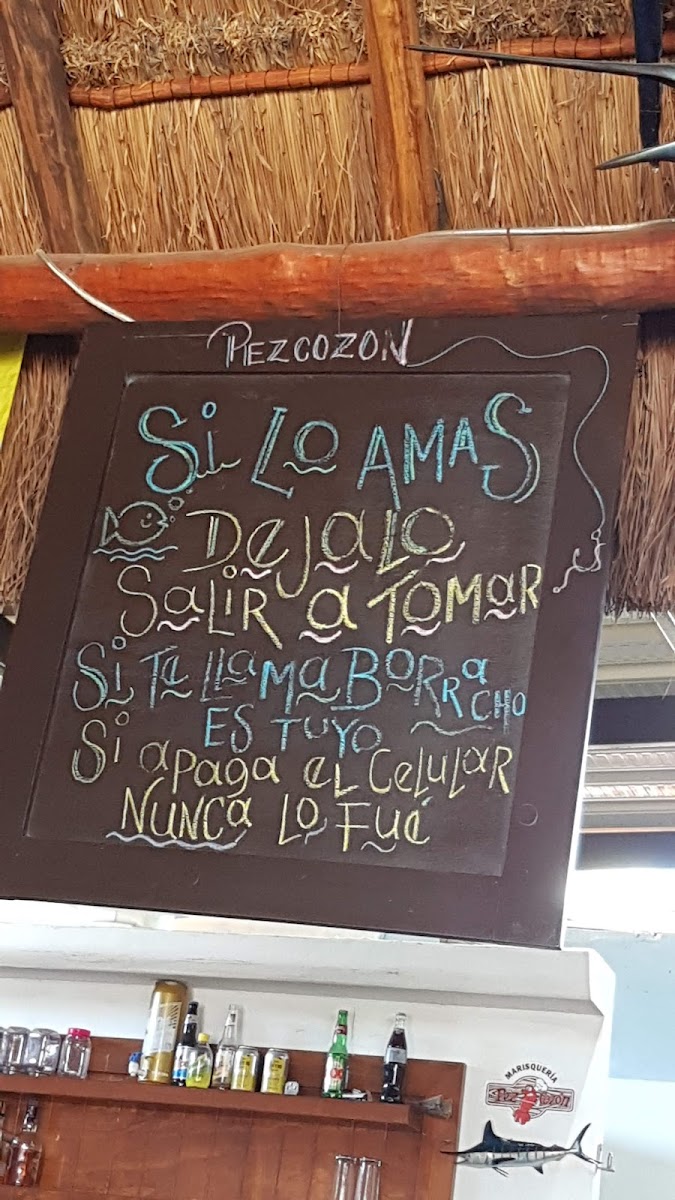 PEZCOZON
Si Lo AMAS
DejaLO
SaLiR a TOMaR
Si Te LLaMa BoRRacho
ES TUYO
Si apaga eL CeLuLaR
NUNCa Lo Fué
MARISQUERÍA
Pez Cozon